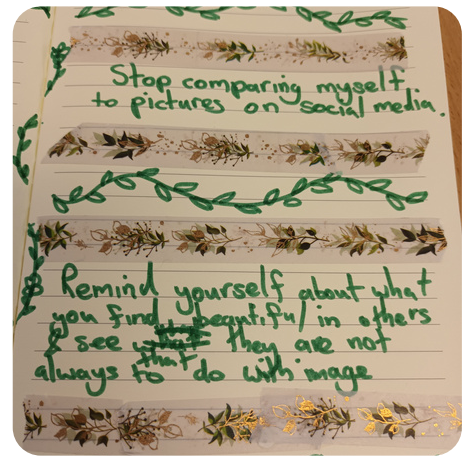 Stop comparing myself
to pictures on social media.
Remind yourself about what
you find beautiful in others
& see that they are not
always to do with image